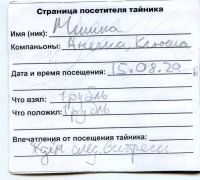 Страница посетителя тайника
Имя (ник): Мишка
Компаньоны: Анелма, Ксюша
Дата и время посещения: 15.08.20
Что взял: 1 рубль
Что положил: 1 рубль
Впечатления от посещения тайника:
Ждём след.